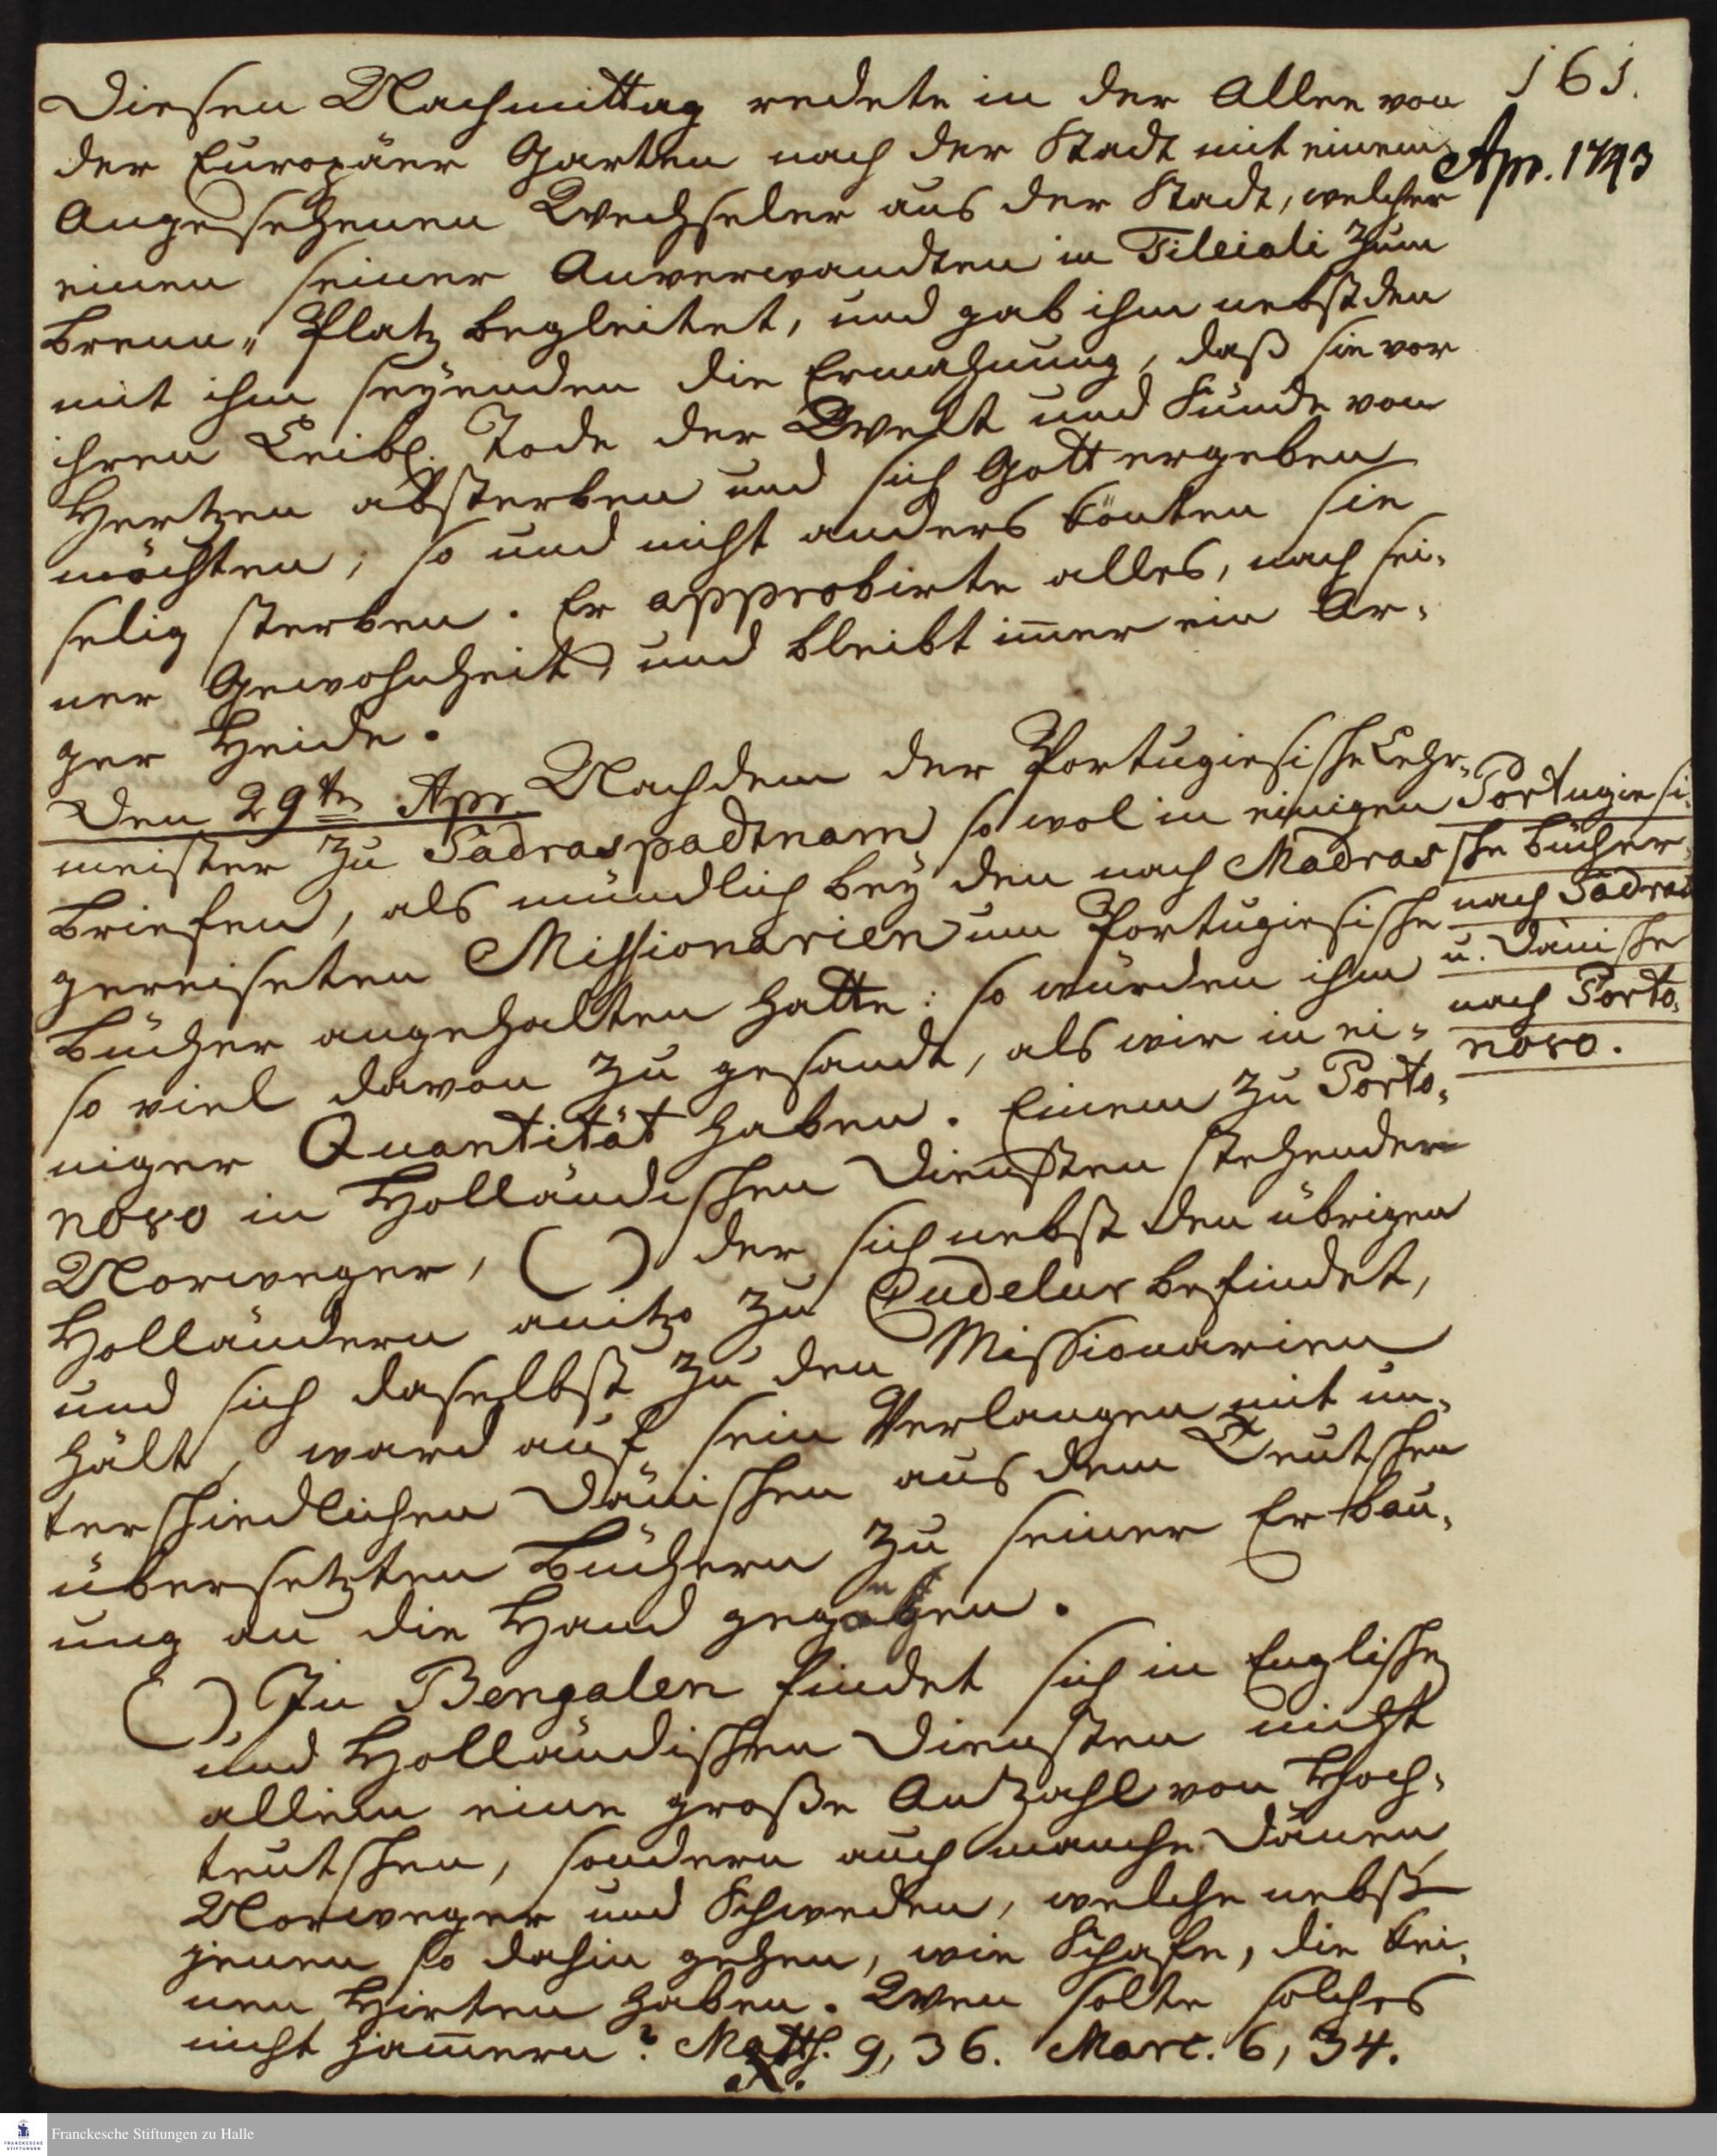 161.
Apr. 1743
Diesen Nachmittag redete in der Allee von
der Europäer Garten nach der Stadt mit einem
Angesehenen Wechseler aus der Stadt, welcher
einen seiner Anverwandten in Tileiali zum
Brenn„ Platz begleitet, und gab ihm nebst den
mit ihm seyenden die Ermahnung, daß sie vor
ihren Leibl. Tode der Welt und Sünde von
Hertzen absterben und sich Gott ergeben
möchten; so und nicht anders könten sie
selig sterben. Er approbirte alles, nach sei-
ner Gewohnheit, und bleibt im̅er ein Ar-
ger Heide.
Den 29ten Apr. Nachdem der Portugiesische Lehr-
meister zu Sadraspadtnam so wol in einigen
Briefen, als mündlich bey den nach Madras
gereiseten Missionarien um Portugiesische
Bücher angehalten hatte: so wurden ihm
so viel davon zu gesandt, als wir in ei-
niger Quantität haben. Einem zu Porto-
novo in Holländischen Diensten stehenden
Norweger, ( ) der sich nebst den übrigen
Holländern anitzo zu Cudelur befindet,
und sich daselbst zu den Missionarien
hält, ward auf sein Verlangen mit un-
terschiedlichen Dänischen aus dem Teutschen
übersetzten Büchern zu seiner Erbau-
ung an die Hand gegangen.
Portugiesi-
sche Bücher
nach Sadras
u. Dänische
nach Porto-
novo.
( ) In Bengalen findet sich in Englische
und Holländischen Diensten nicht
allein eine große Anzahl von Hoch-
teutschen, sondern auch manche Dänen,
Norweger und Schweden, welche nebst
jenen so dahin gehen, wie Schafe, die kei-
nen Hirten haben. Wen solte solches
nicht jam̅ern? Matth. 9, 36. Marc. 6, 34.
X.
Franckesche Stiftungen zu Halle